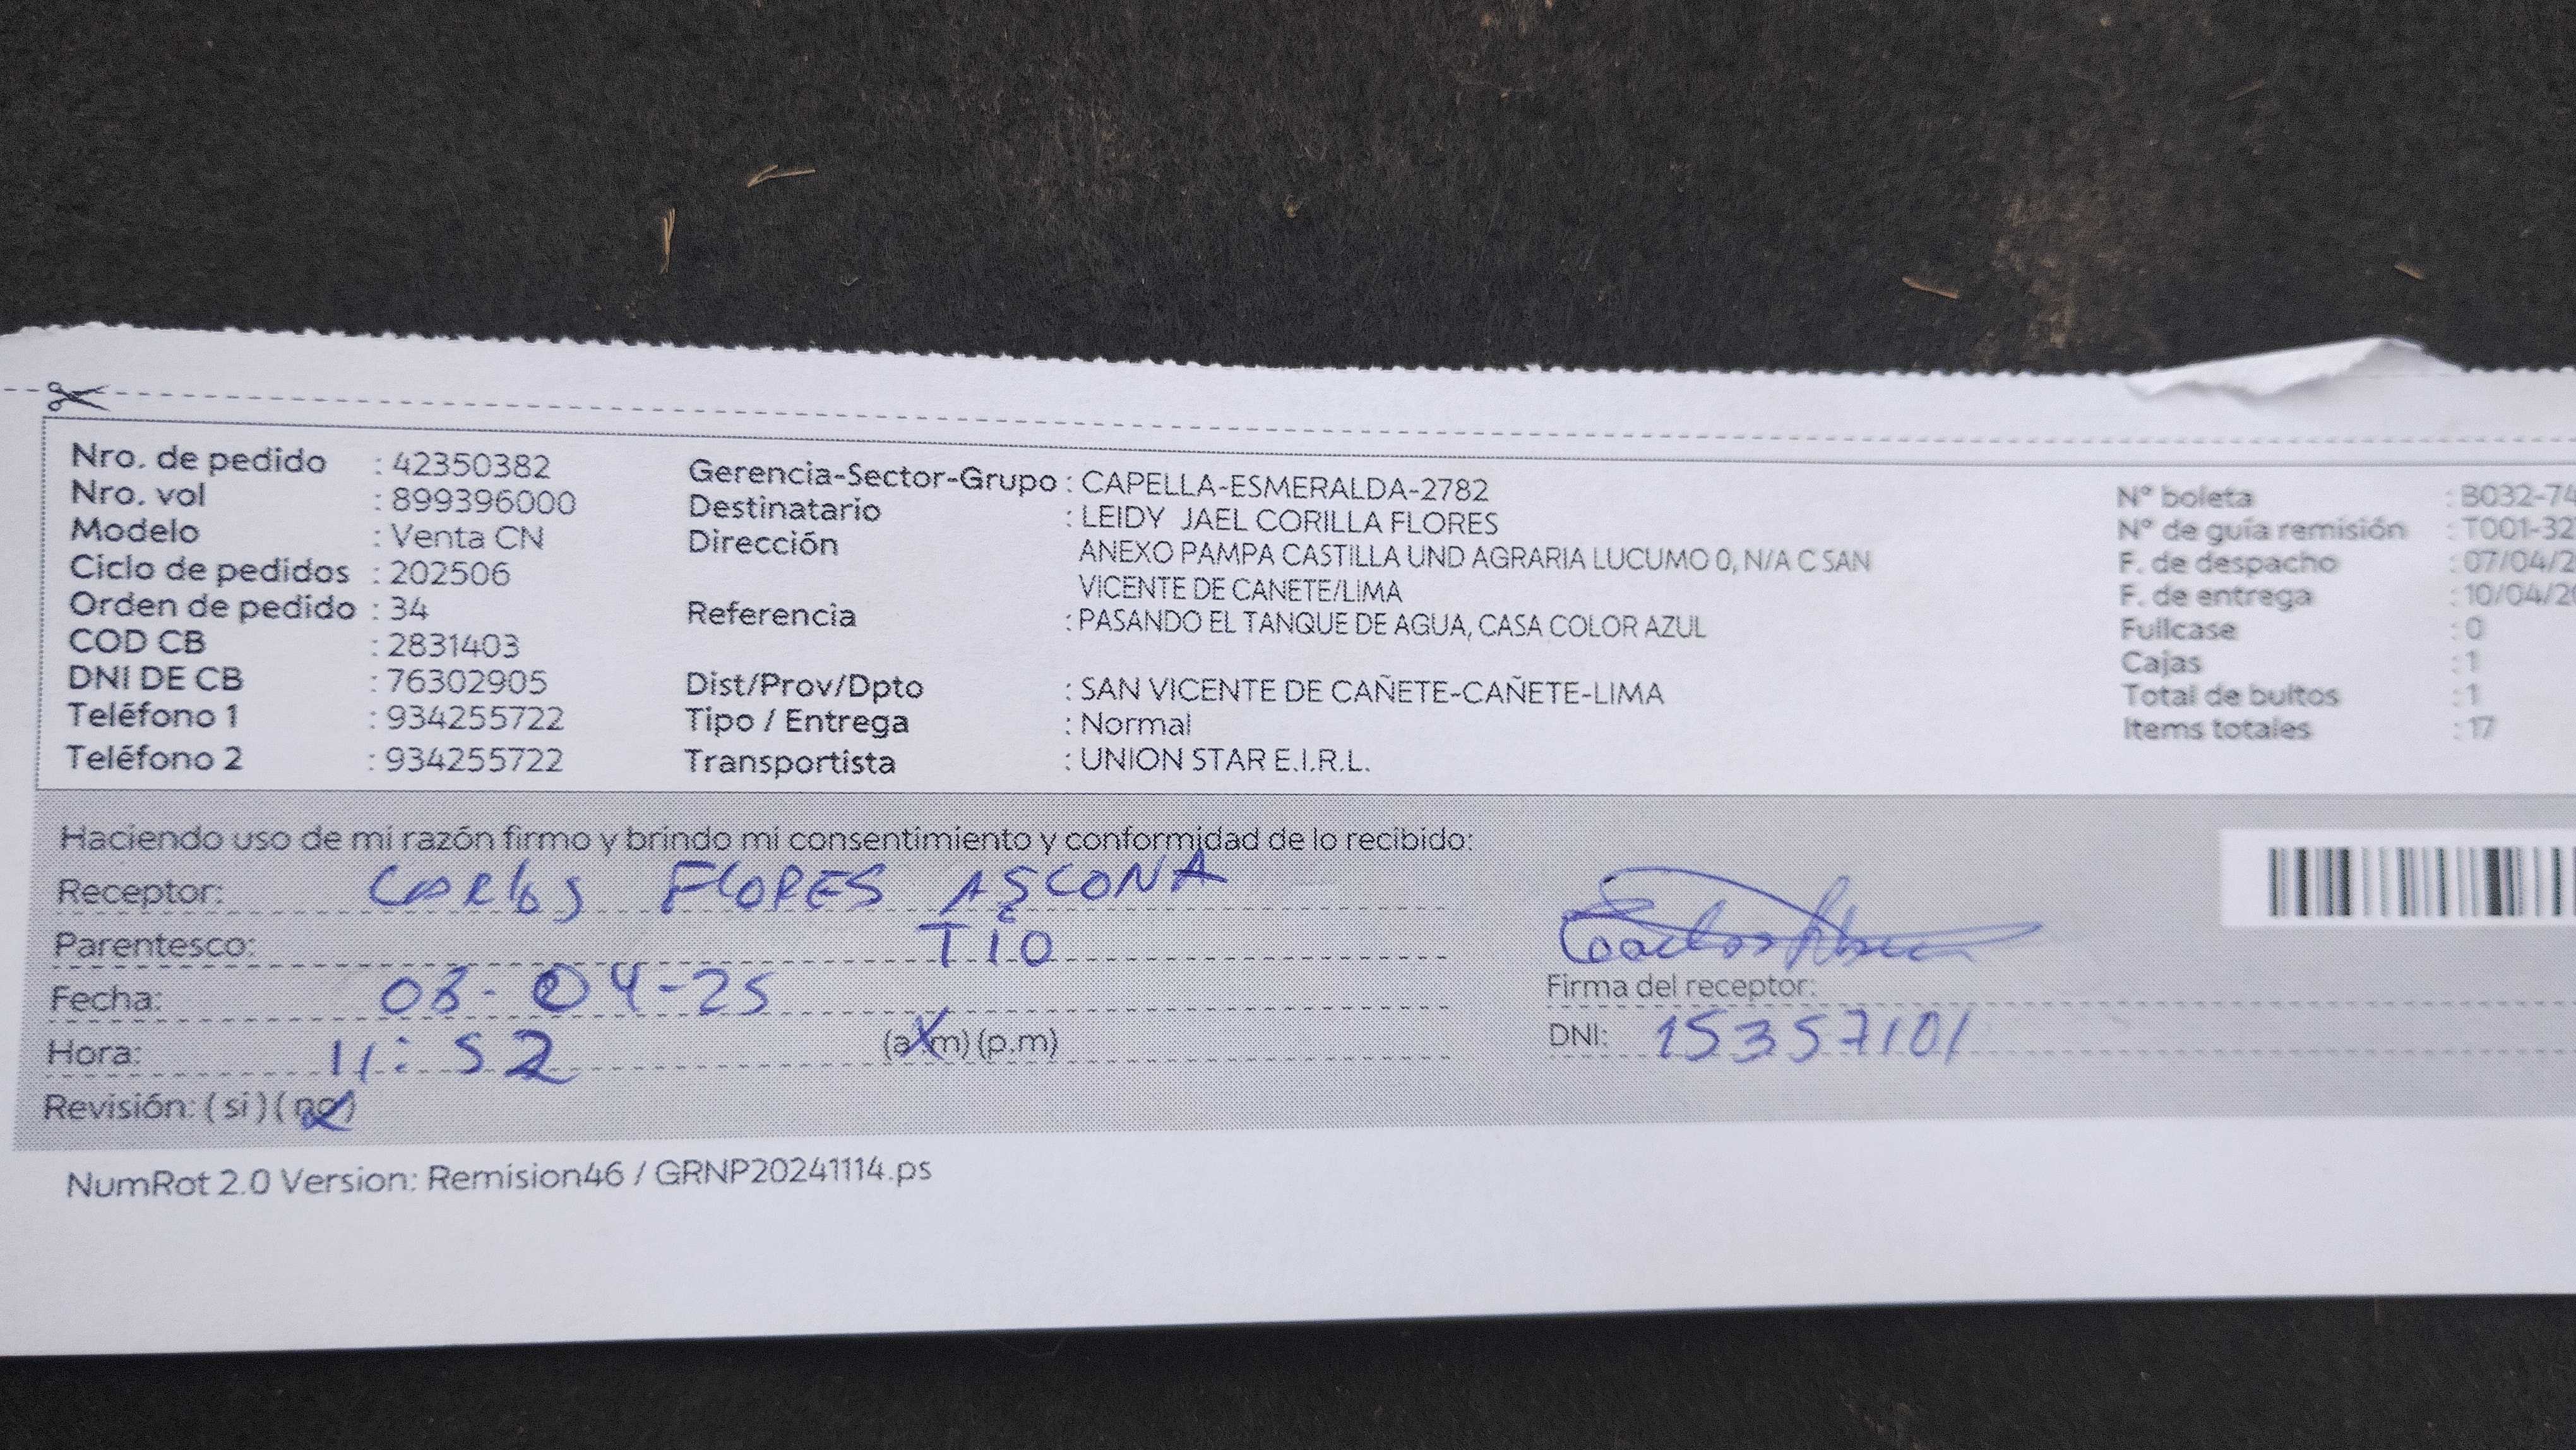 Nro. de pedido : 42350382
Nro. vol : 899396000
Modelo : Venta CN
Ciclo de pedidos : 202506
Orden de pedido : 34
COD CB : 2831403
DNI DE CB : 76302905
Teléfono 1 : 934255722
Teléfono 2 : 934255722
Gerencia-Sector-Grupo : CAPELLA-ESMERALDA-2782
Destinatario : LEIDY JAEL CORILLA FLORES
Dirección ANEXO PAMPA CASTILLA UND AGRARIA LUCUMO 0, N/A C SAN
VICENTE DE CANETE/LIMA
Referencia : PASANDO EL TANQUE DE AGUA, CASA COLOR AZUL
Dist/Prov/Dpto : SAN VICENTE DE CAÑETE-CAÑETE-LIMA
Tipo / Entrega : Normal
Transportista : UNION STAR E.I.R.L.
N° boleta : B032-74
N° de guía remisión : T001-32
F. de despacho : 07/04/2
F. de entrega : 10/04/20
Fullcase : 0
Cajas : 1
Total de bultos : 1
Items totales : 17
Haciendo uso de mi razón firmo y brindo mi consentimiento y conformidad de lo recibido:
Receptor: CARlos FLORES ASCONA
Parentesco: TIO
Fecha: 08-04-25
Hora: 11:52 (a.m) (p.m)
Revisión: ( si ) ( no )
Firma del receptor:
DNI: 15357101
NumRot 2.0 Version: Remision46 / GRNP20241114.ps